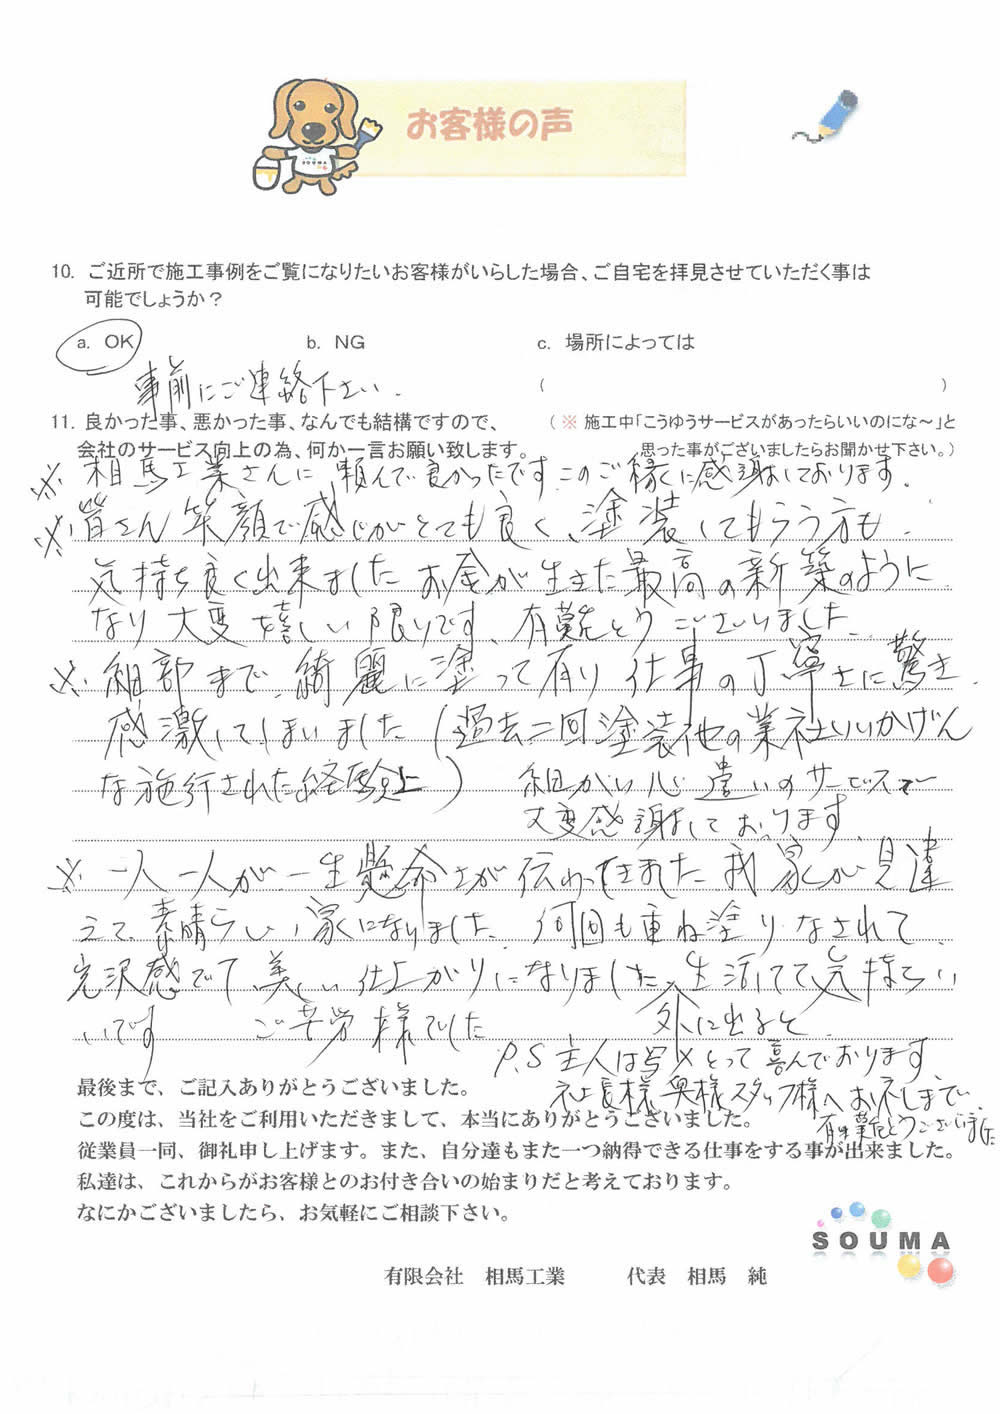 お客様の声
SOUMA
10. ご近所で施工事例をご覧になりたいお客様がいらした場合、ご自宅を拝見させていただく事は
可能でしょうか？
a. OK b. NG c. 場所によっては
事前にご連絡下さい. ( )
11. 良かった事、悪かった事、なんでも結構ですので、 (※ 施工中「こうゆうサービスがあったらいいのにな～」と
会社のサービス向上の為、何か一言お願い致します。 思った事がございましたらお聞かせ下さい。)
※ 相馬工業さんに頼んで良かったです このご縁に感謝しております.
※ 皆さん笑顔で感じがとても良く、塗装してもらう方も
気持ち良く出来ました お金が生きた最高の新築のように
なり大変嬉しい限りです、有難とうございました
※ 細部まで綺麗に塗って有り仕事の丁寧さに驚き
感激してしまいました (過去二回塗装他の業社いいかげん
な施行された経験上) 細かい心遣いのサービスで
大変感謝しております
※ 一人一人が一生懸命さが伝わってきました 我家が見違
えて素晴らしい家になりました 何回も重ね塗りなされて
光沢感でて美しい仕上がりになりました 生活してて気持ちい
いです ご苦労様でした 外に出ると
P.S 主人は写メとって喜んでおります
社長様 奥様 スタッフ様へお礼しまで
有難とうございました
最後まで、ご記入ありがとうございました。
この度は、当社をご利用いただきまして、本当にありがとうございました。
従業員一同、御礼申し上げます。また、自分達もまた一つ納得できる仕事をする事が出来ました。
私達は、これからがお客様とのお付き合いの始まりだと考えております。
なにかございましたら、お気軽にご相談下さい。
SOUMA
有限会社 相馬工業 代表 相馬 純